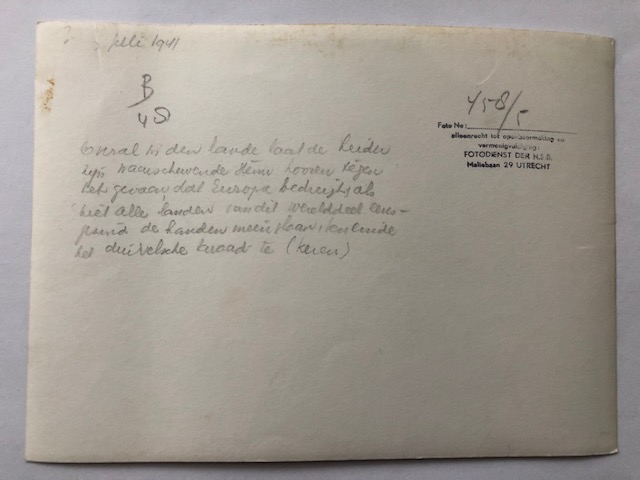 Juli 1941
B
48
458/5
Foto No:
alleenrecht tot openbaarmaking en
vermenigvuldiging:
FOTODIENST DER N.S.B.
Maliebaan 29 UTRECHT
Overal in den lande laat de leider
zijn waarschuwende stem hooren tegen
het gevaar, dat Europa bedreigt, als
niet alle landen van dit werelddeel eens-
gezind de handen ineen slaan, ten einde
het duivelsche kwaad te (keren)